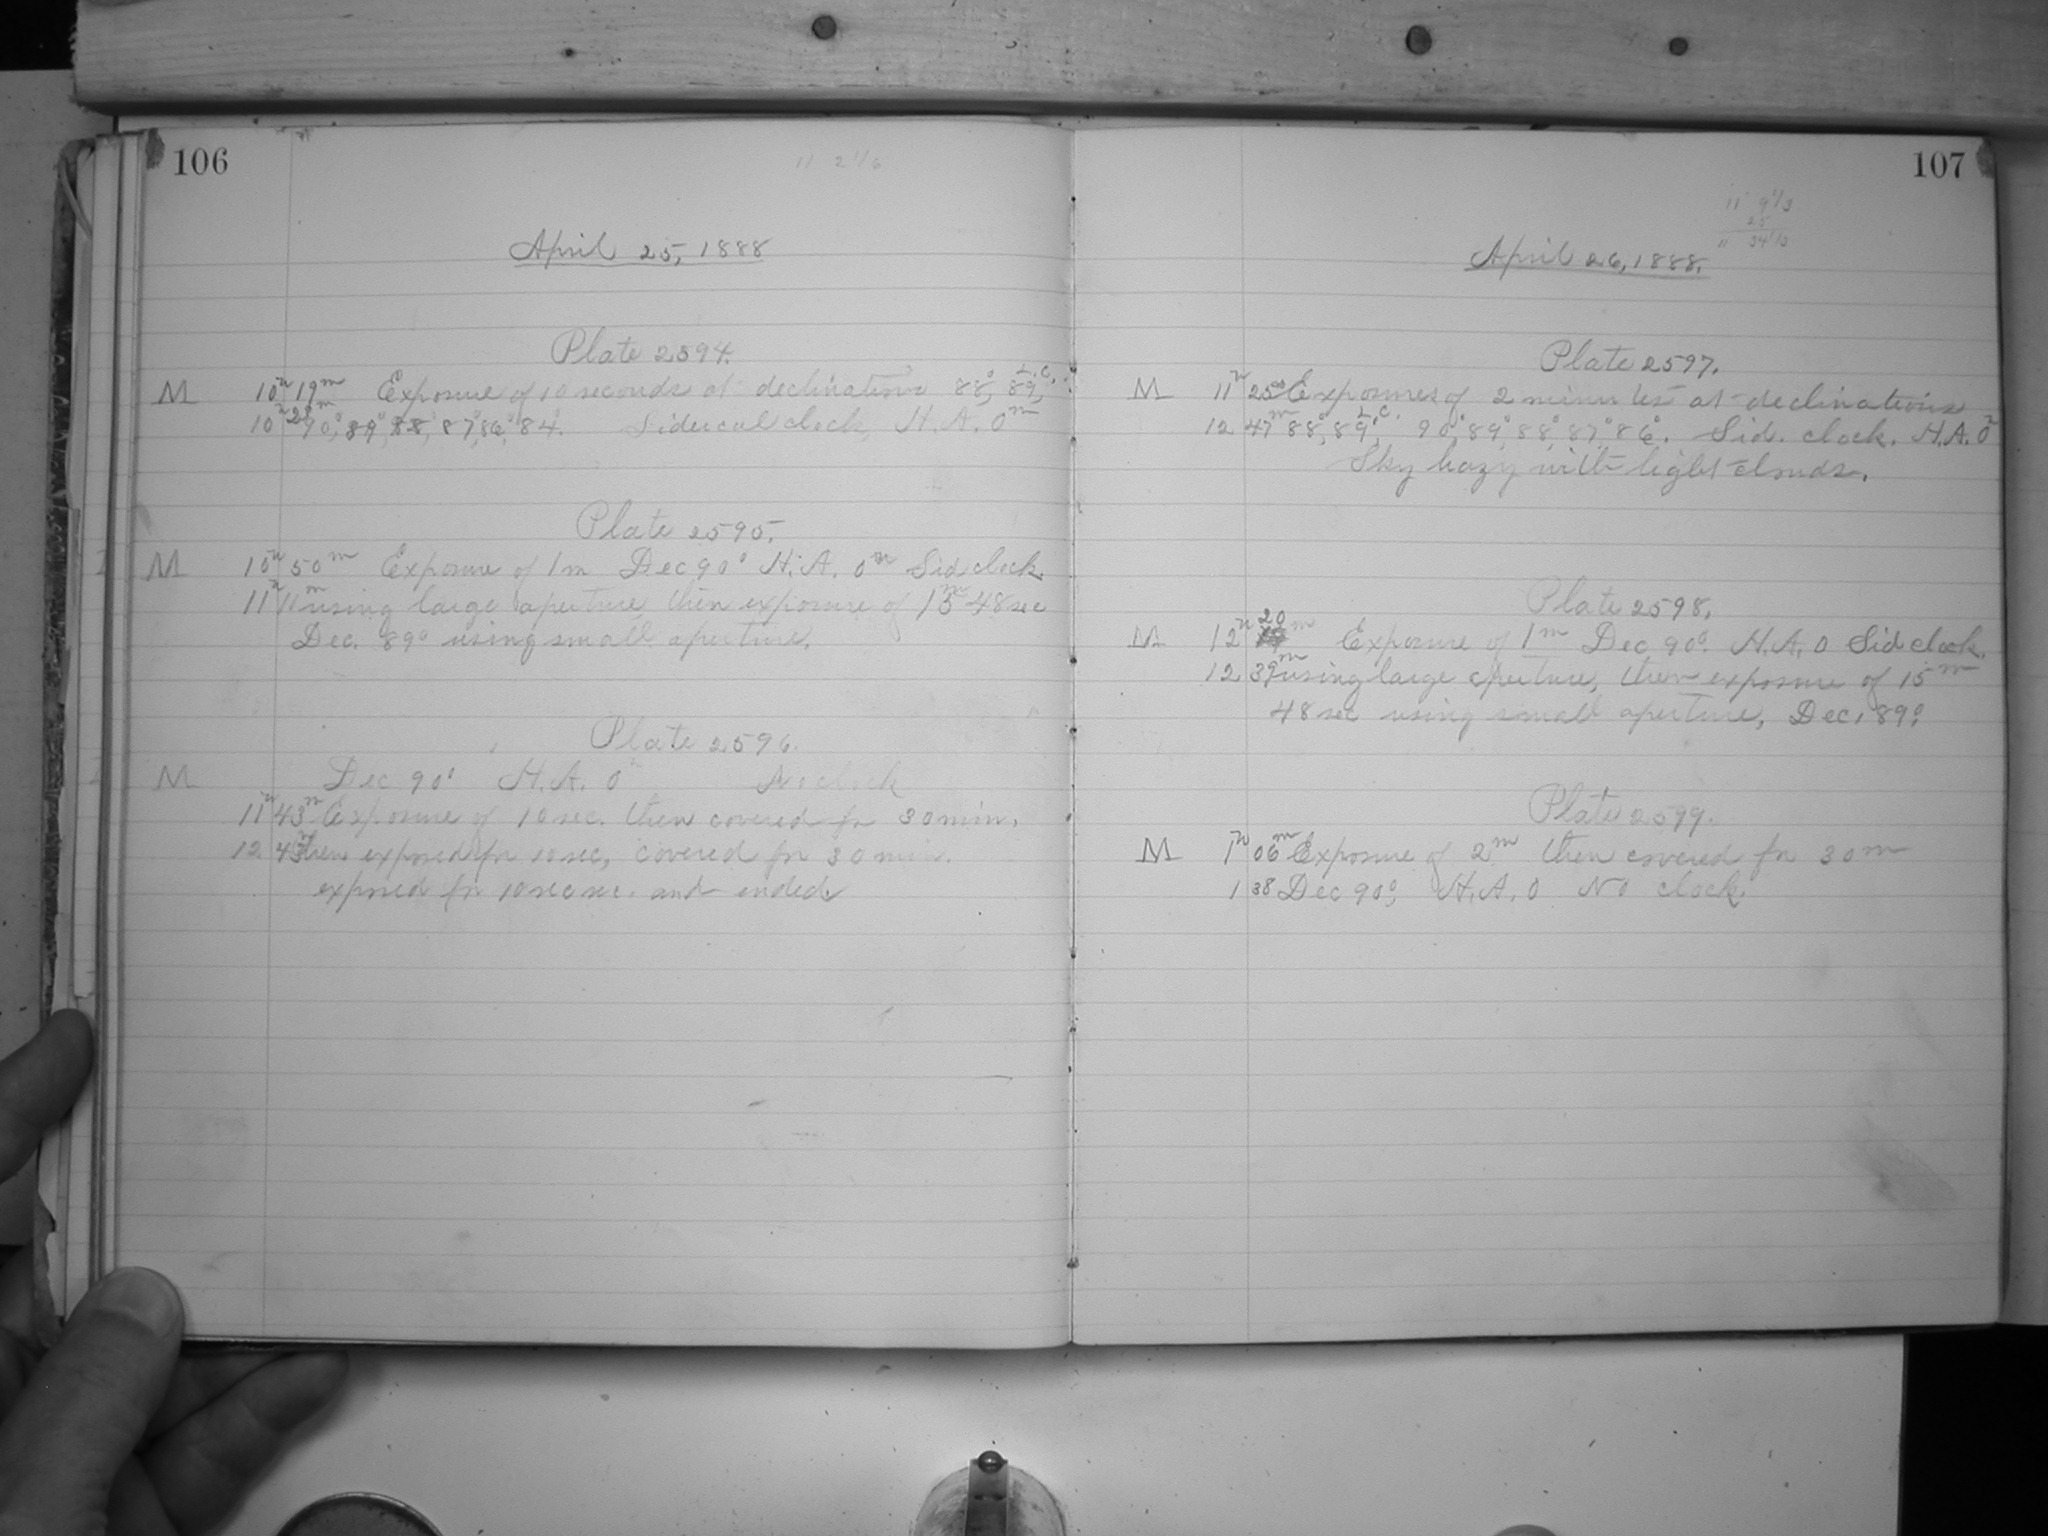 106
11 2 1/6
April 25, 1888
Plate 2594.
M 10h 19m Exposure of 10 seconds at declinations 88°, 89°, L.C.
10h 28m 90°, 89°, 88°, 87°, 86°, 84°. Sidereal clock, H.A. 0m
Plate 2595.
M 10h 50m Exposure of 1m Dec 90° H.A. 0m Sid clock.
11h 11m using large aperture, then exposure of 15m 48sec
Dec. 89° using small aperture.
Plate 2596.
M Dec 90° H.A. 0 No clock
11h 43m Exposure of 10 sec. then covered for 30 min.
12 43 then exposed for 10 sec, covered for 30 min.
exposed for 10 sec sec. and ended.
107
11 9 1/3
25
" 34 1/3
April 26, 1888.
Plate 2597.
M 11h 25m Exposures of 2 minutes at declinations
12 47m 88°, 89°, L.C. 90°, 89°, 88°, 87°, 86°. Sid. clock. H.A. 0m
Sky hazy with light clouds.
Plate 2598.
M 12h 20m Exposure of 1m Dec 90°. H.A. 0 Sid clock.
12 39m using large aperture, then exposure of 15m
48 sec using small aperture, Dec. 89°
Plate 2599.
M 1h 06m Exposure of 2m then covered for 30m
1 38 Dec 90°, H.A. 0 No clock.